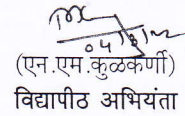 (एन.एम.कुळकर्णी)
विद्यापीठ अभियंता